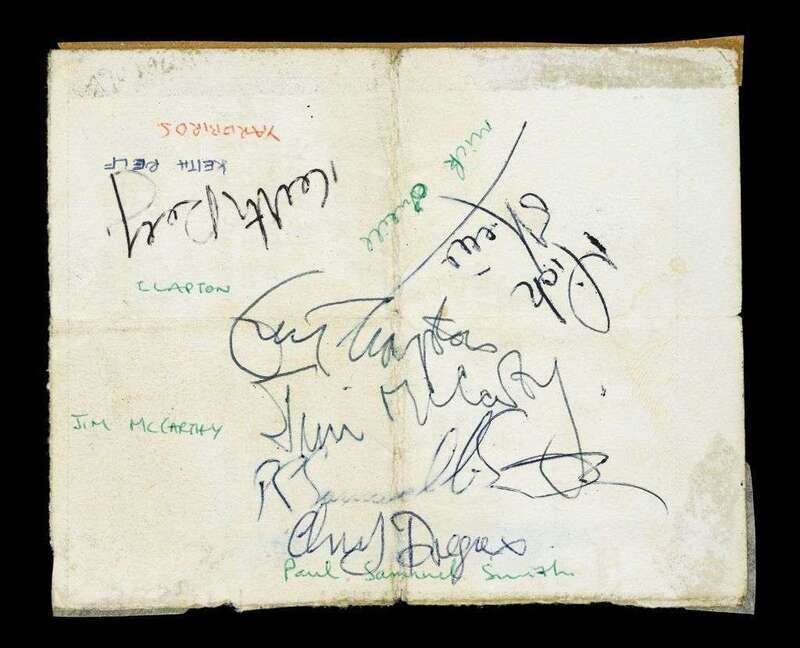 YARDBIRDS
KEITH RELF
Keith Relf
Mick O'neill
Mick O'Neill
CLAPTON
Eric Clapton
Jim McCarty.
JIM McCARTHY
P Samwell-Smith
Chris Dreja x
Paul Samuel Smith